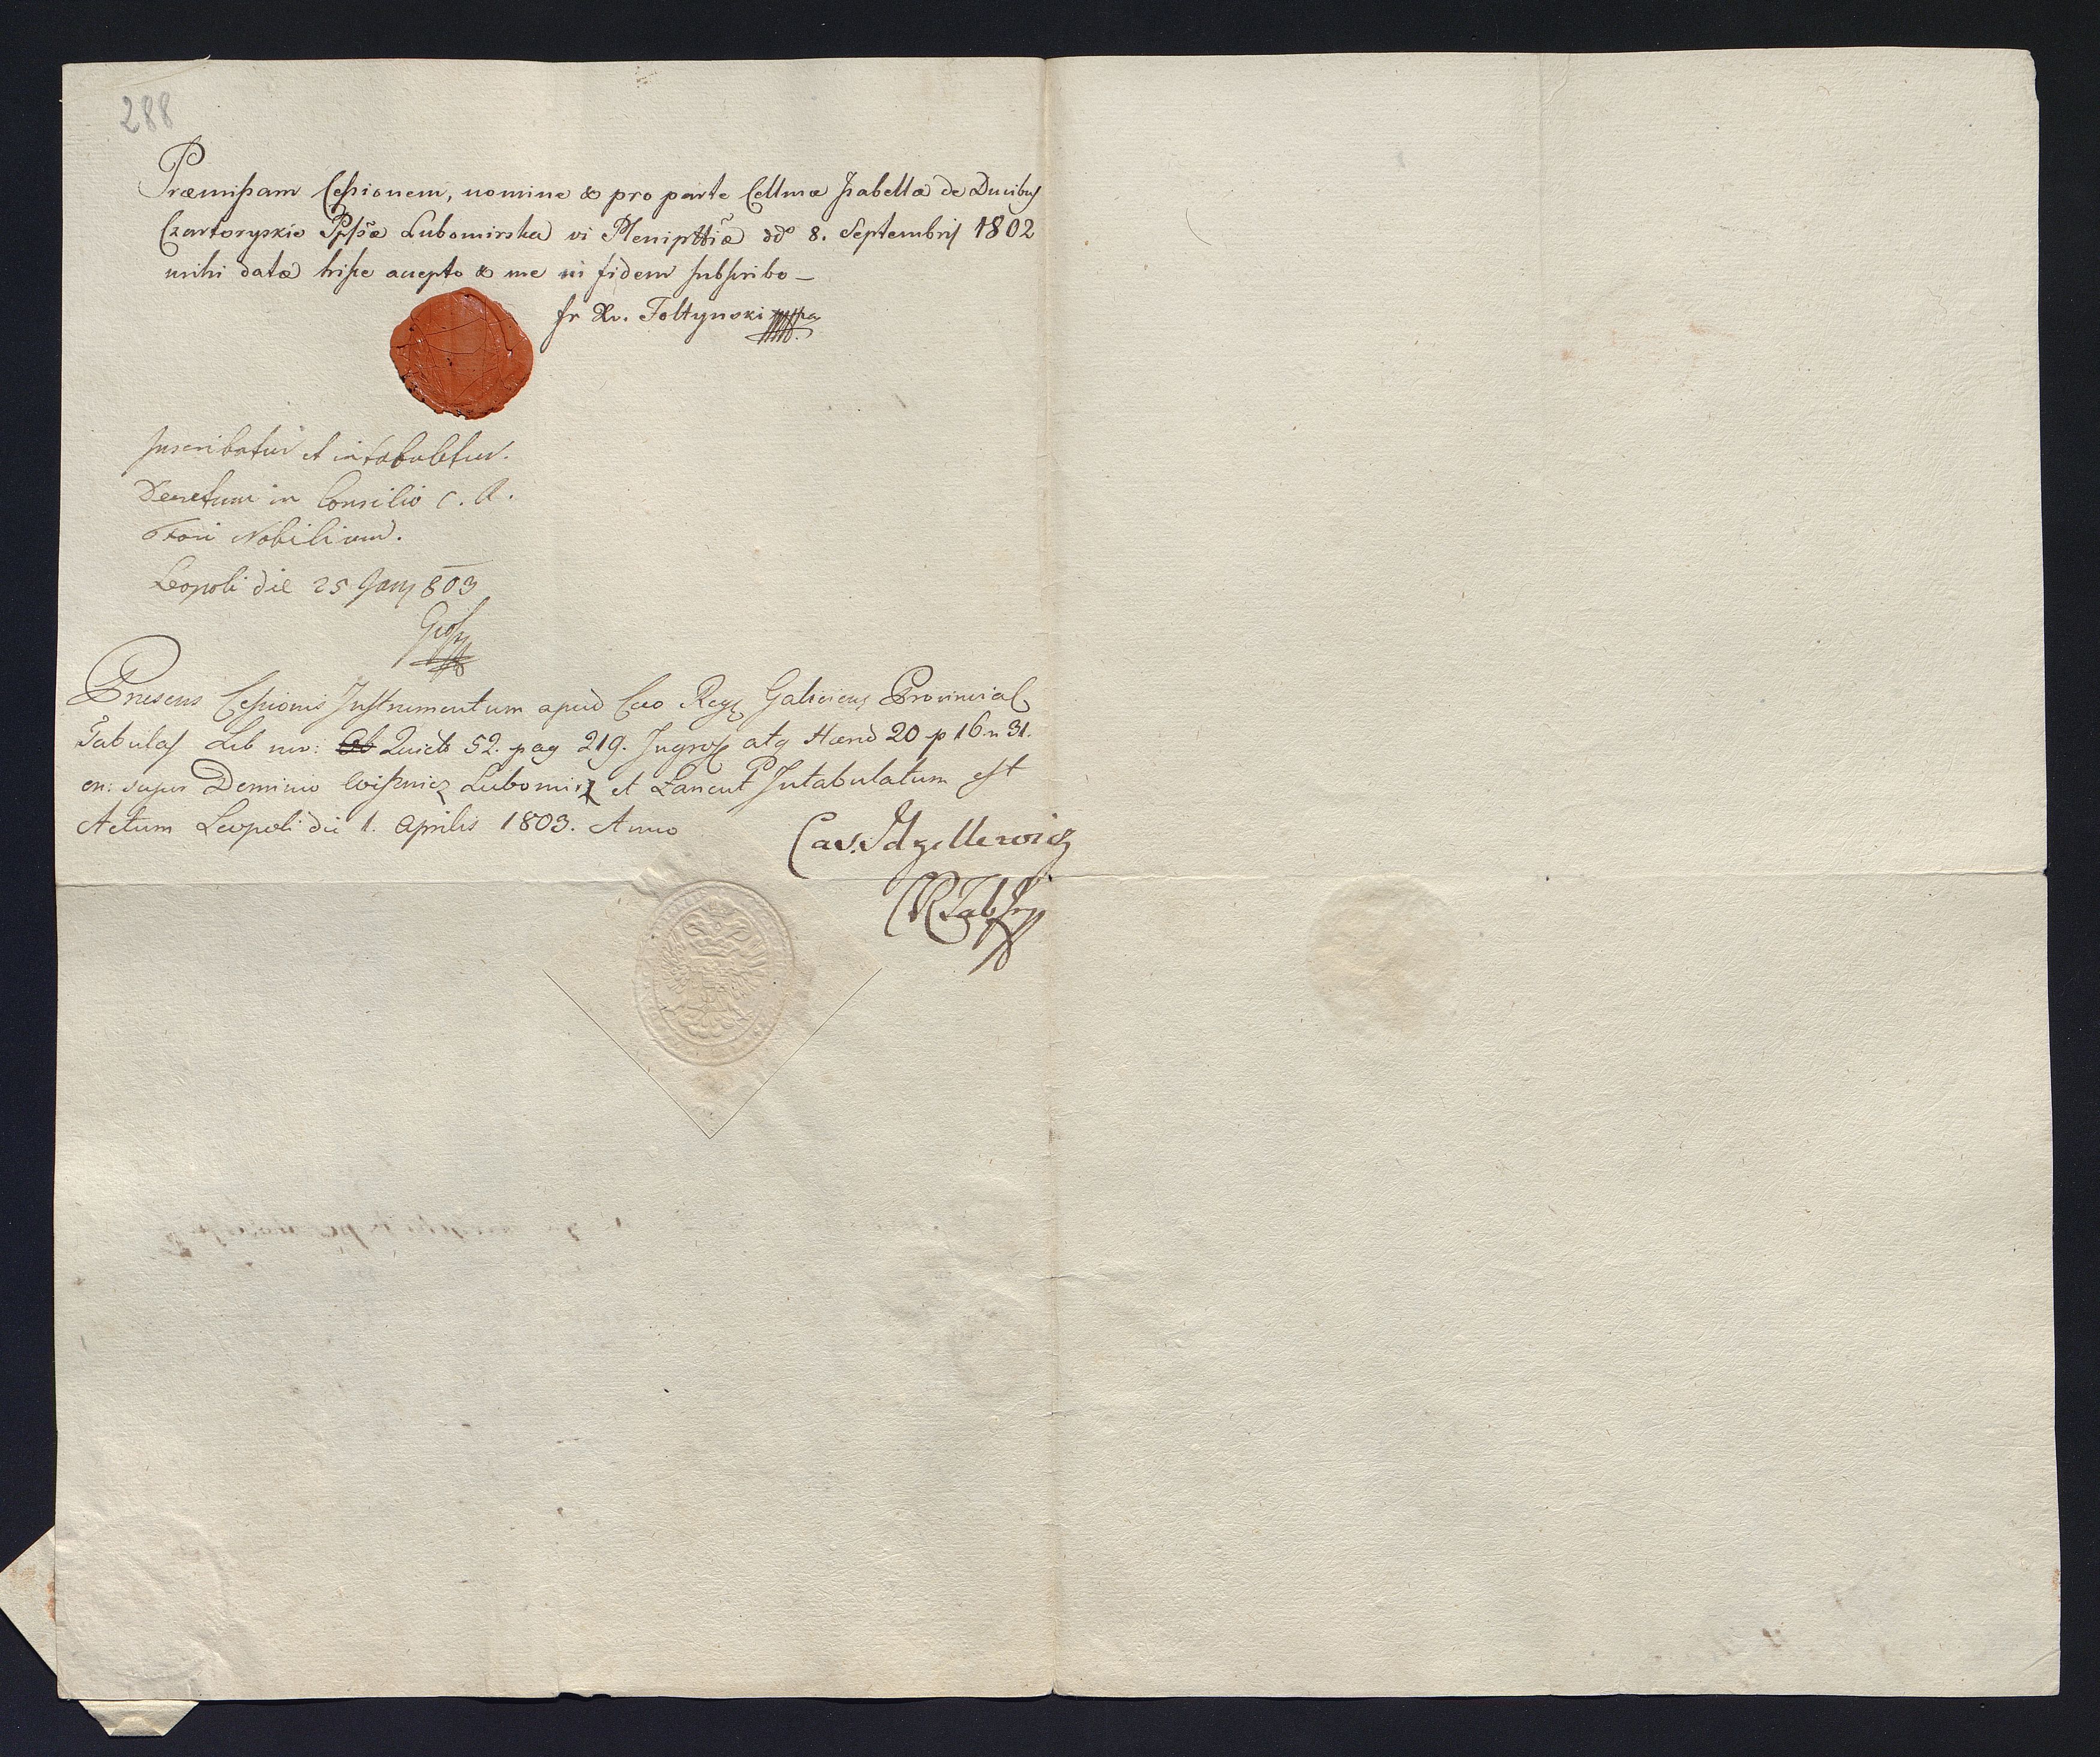 288
Præmissam Cessionem, nomine & pro parte Cellmæ Isabellæ de Ducibus
Czartoryskie Ppssæ Lubomirska vi Plenipttiæ ddo 8. Septembris 1802
mihi datæ hisce accepto & me in fidem subscribo –
fr Xv. Foltynski mppa
Inscribatur et intabuletur.
Decretum in Consilio C. R.
Fori Nobilium.
Leopoli die 25 Jany 803
Præsens Cessionis Instrumentum apud Cæo Reg Galicien Provincial
Tabulas Lib nov: Quiet 52. pag 219. Ingros atq Hæred 20 p 16. n 31.
on: super Dominio Wisznicz Lubomirz et Lancut Intabulatum est
Actum Leopoli die 1. Aprilis 1803. Anno
Cas. Idzellewicz
CR Tab